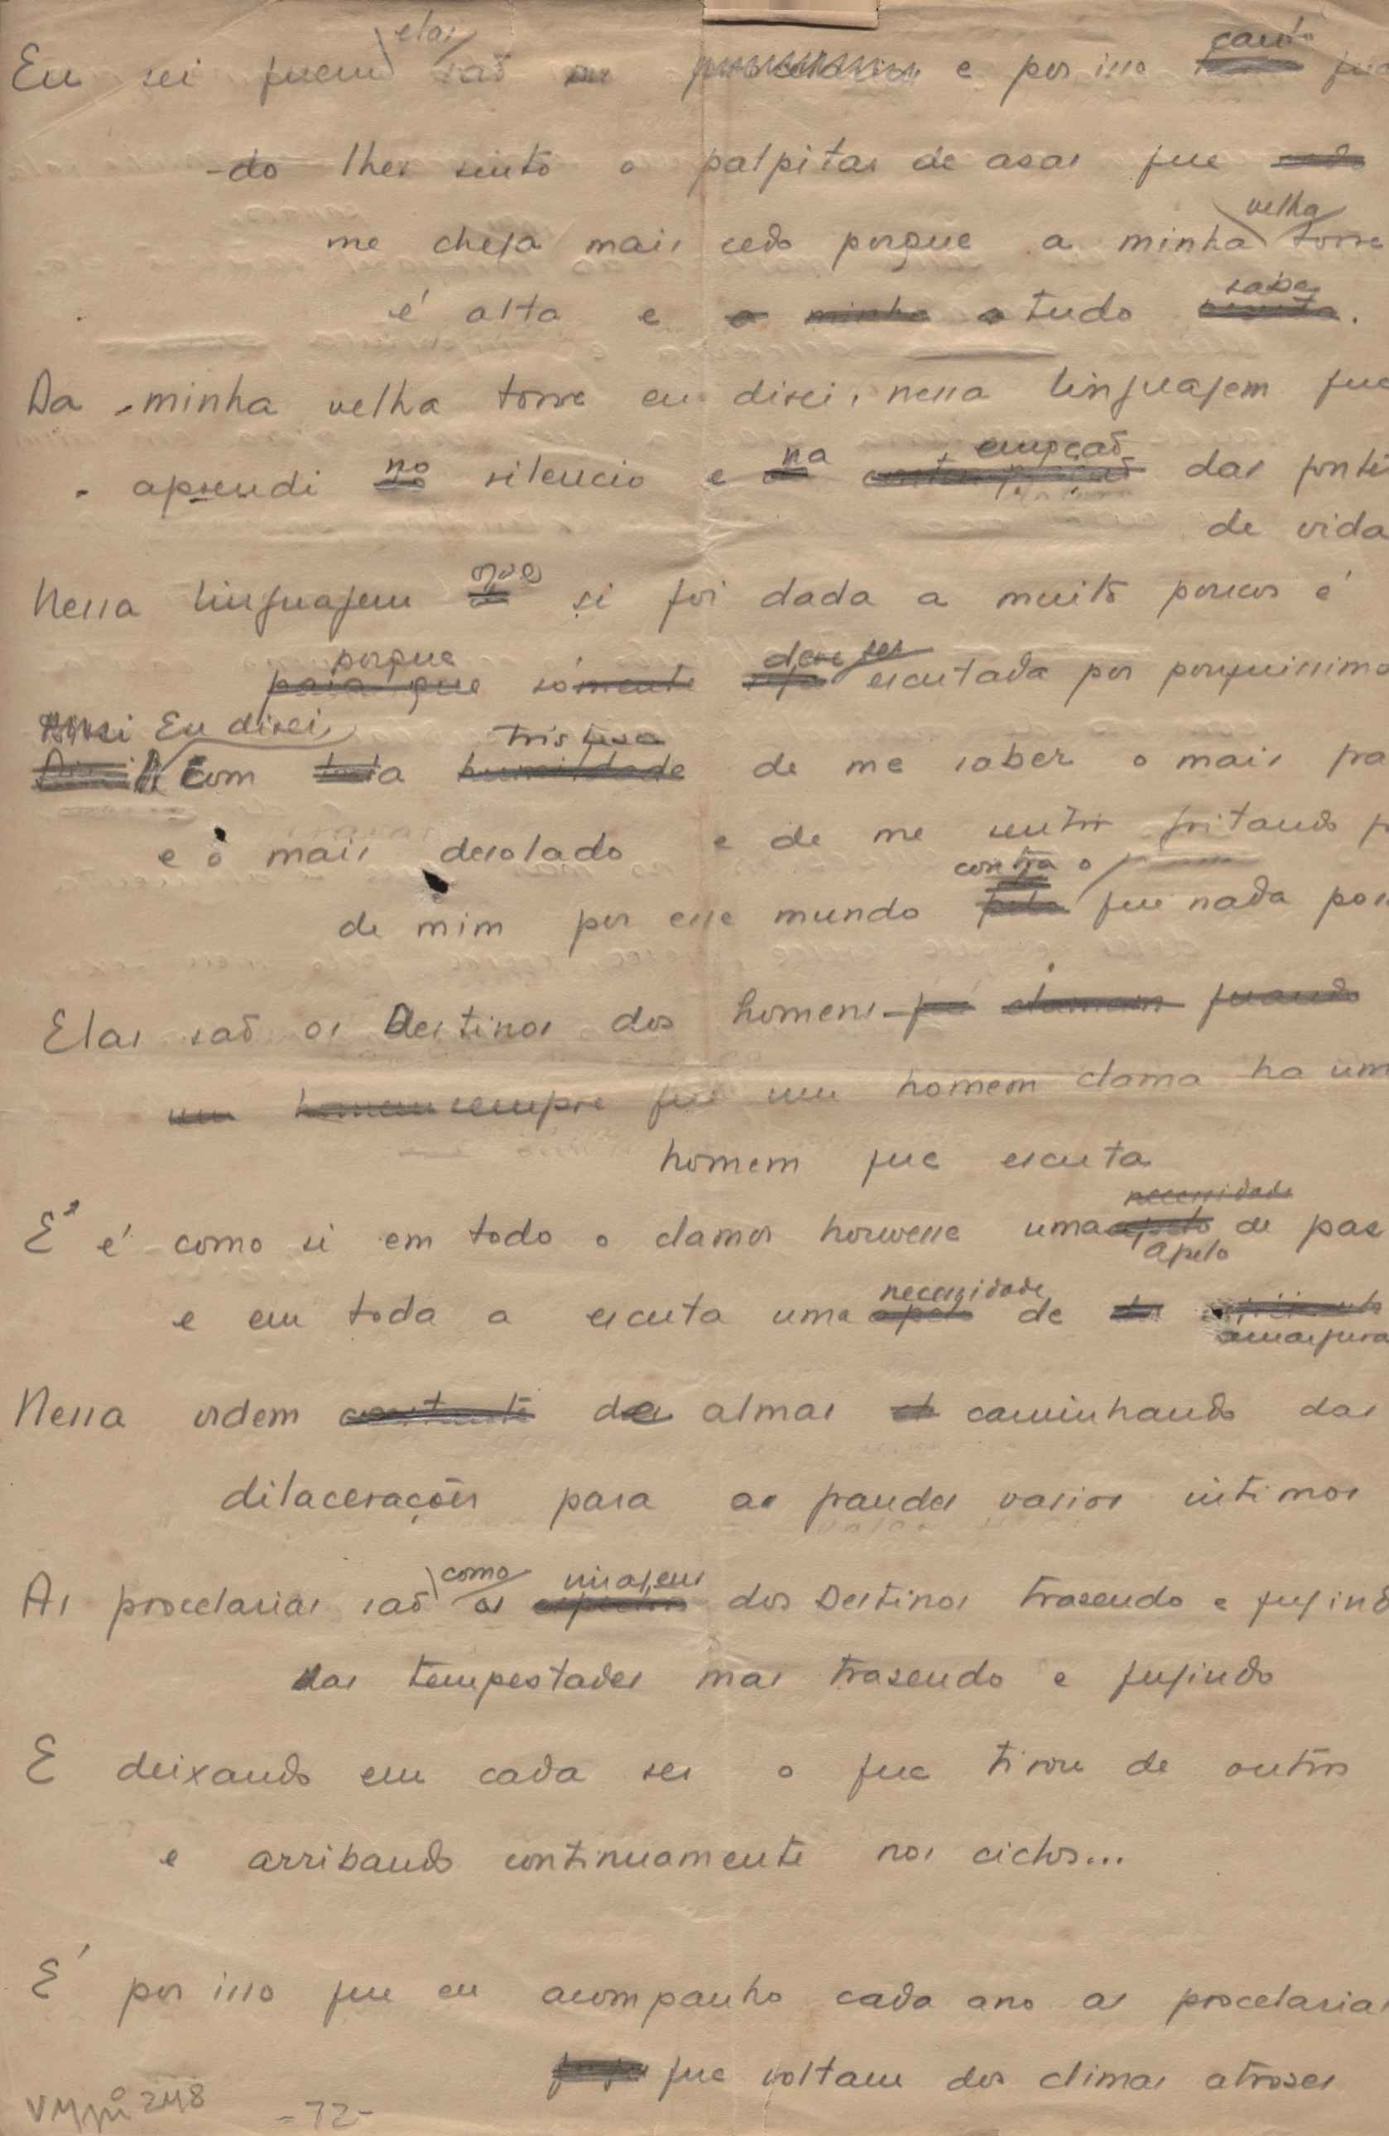 Eu sei quem elas são e por isso canto qua
do lhes sinto o palpitar de asas que
me chega mais cedo porque a minha velha torre
é alta e tudo sabe.
Da minha velha torre eu direi, nessa linguagem que
aprendi no silencio e na emoção das fontes
de vida
Nessa linguagem que si foi dada a muito poucos é
porque só deve ser escutada por pouquissimo
Eu direi
com a tristesa de me saber o mais fra
e o mais desolado e de me sentir gritando
de mim por esse mundo contra o que nada pos
Elas são os Destinos dos homens
sempre que um homem clama ha um
homem que escuta
E é como si em todo o clamor houvesse um apelo de pas
e em toda a escuta uma necessidade de amargura
Nessa ordem de almas caminhando das
dilacerações para os grandes vasios intimos
As procelarias são como as miragens dos Destinos trasendo e fugind
das tempestades mas trasendo e fugindo
E deixando em cada ser o que tirou de outros
e arribando continuamente nos ciclos...
É por isso que eu acompanho cada ano as procelarias
que voltam dos climas atroses
248
-72-